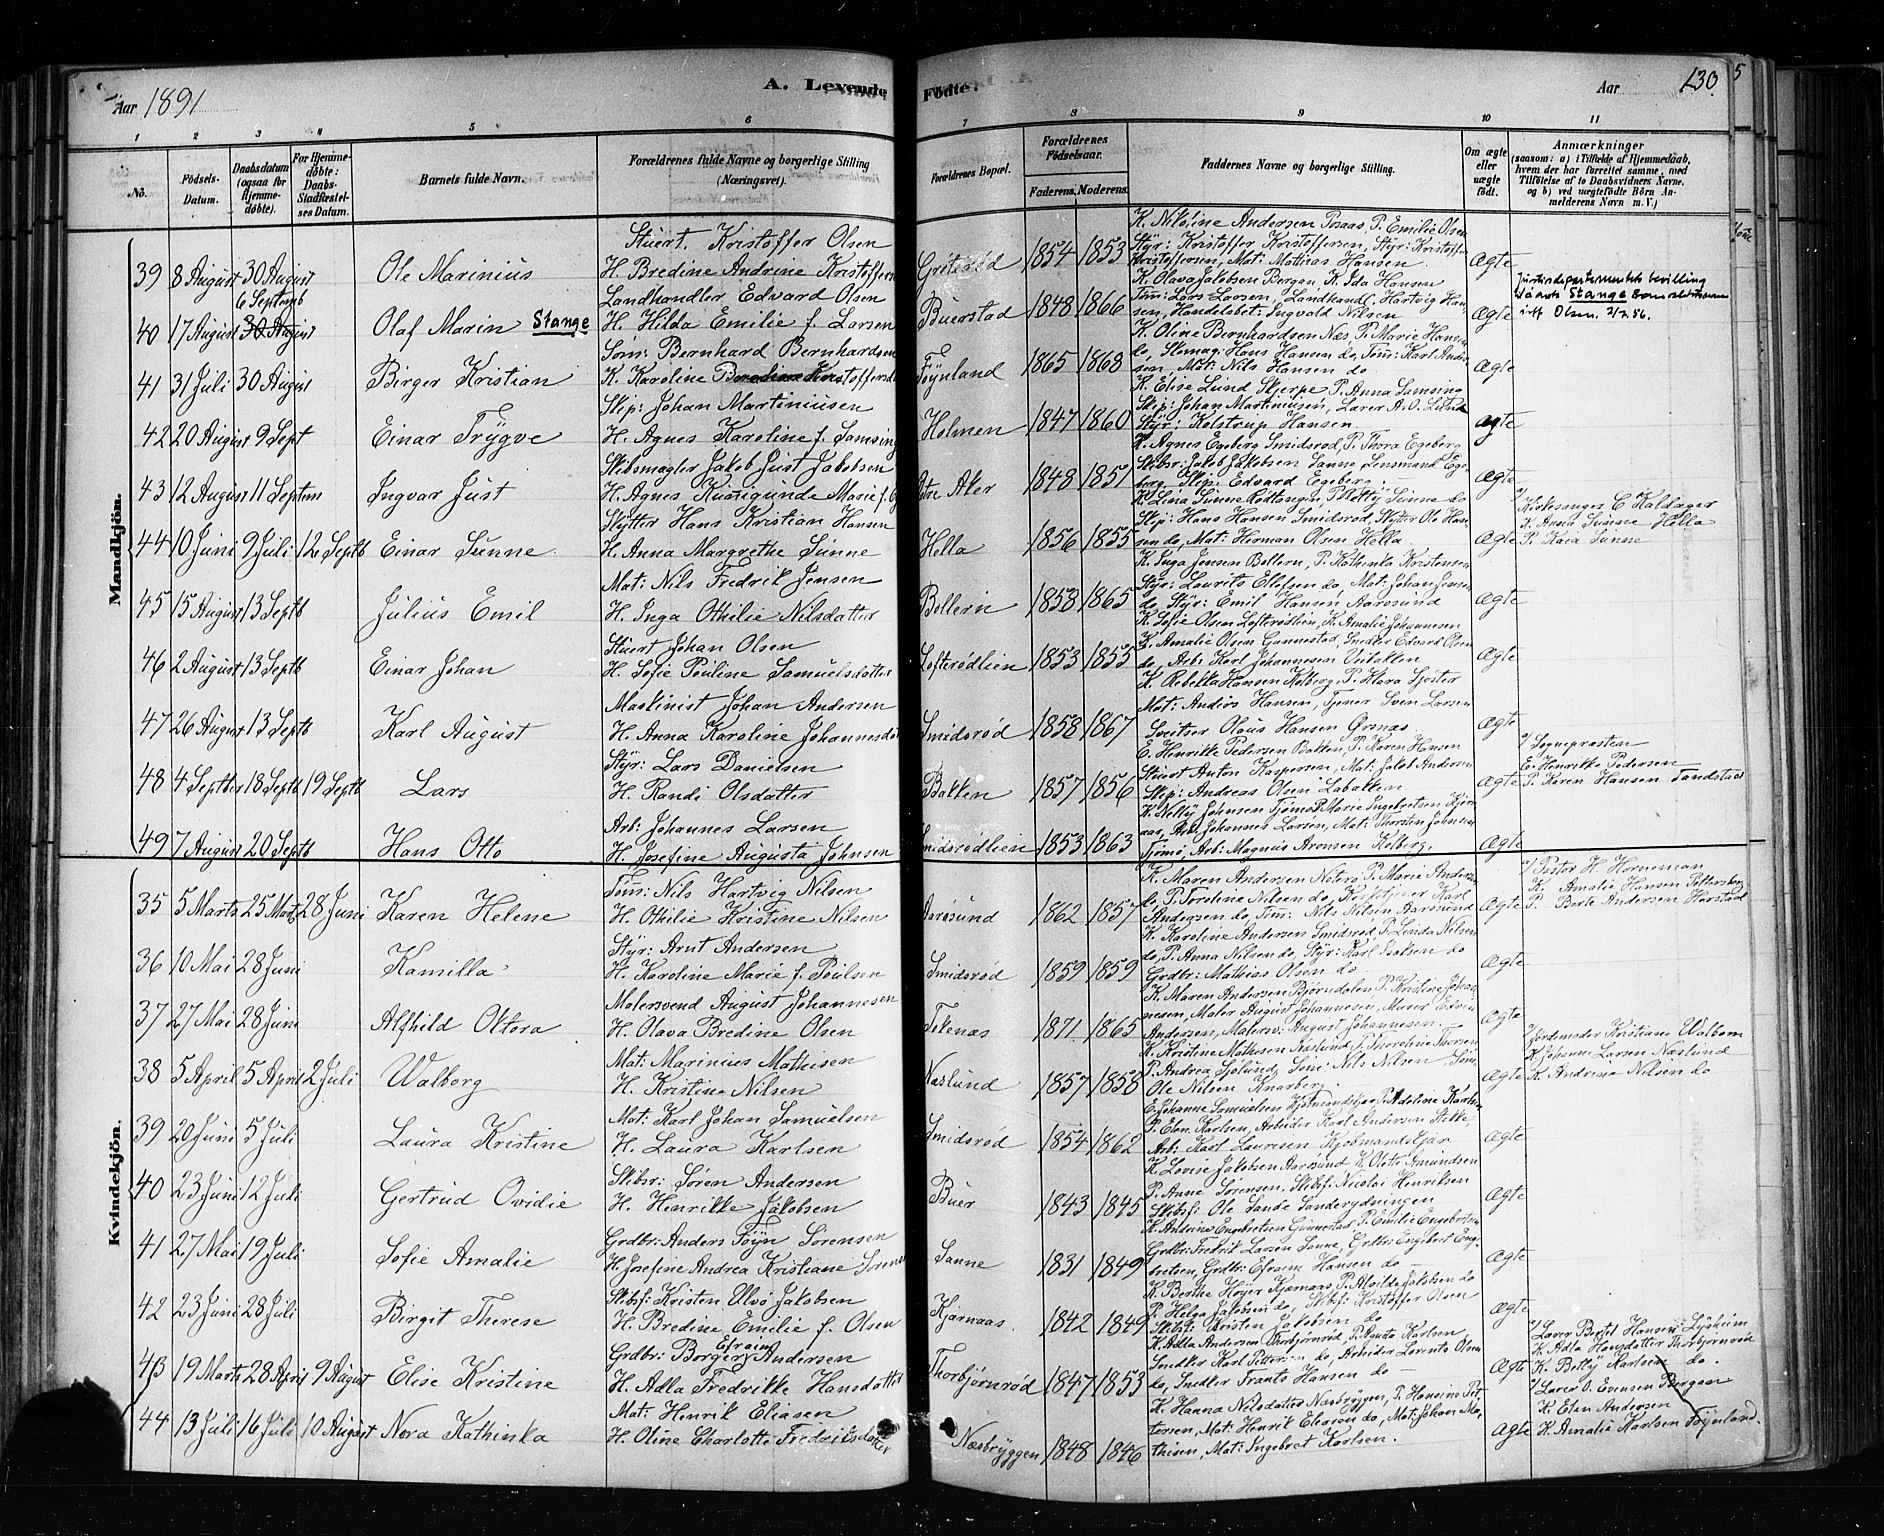 Aar 1891
A. Levende
Fødte.
Aar
130
5
1
2
3
4
5
6
7
8
9
10
11
No.
Fødsels-Datum.
Daabsdatum (ogsaa for Hjemme-døbte).
For Hjemme-døbte: Daabs-Stadfæstel-ses Datum.
Barnets fulde Navn.
Forældrenes fulde Navne og borgerlige Stilling (Næringsvei).
Forældrenes Bopæl.
Forældrenes Fødselsaar.
Faderens.
Moderens.
Faddernes Navne og borgerlige Stilling.
Om ægte eller uægte født.
Anmærkninger
(saasom: a) i Tilfælde af Hjemmedaab, hvem der har forrettet samme, med Tilføielse af to Daabsvidners Navne, og b) ved uægtefødte Børn An-melderens Navn m. V.)
Mandkjön.
39 8 August 30 August Ole Marinius Stuert. Kristoffer Olsen H. Bredine Andrine Kristoffersen 1854 1853 Ægte
K. Nikoine Andersen P. Emilie Olsen
Styr: Kristoffer Kristoffersen, Styr: Kristoffer
Kristoffersen, Mat: Mathias Hansen
40 17 August 6 Septemb 30 August Olaf Marin Stange Landhandler Edvard Olsen H. Hilda Emilie f. Larsen Buerstad 1848 1866 Ægte
K. Olava Jakobsen Bergan K. Ida Hansen
Tøm: Lars Larsen, Landhandl. Hartvig Han-
sen, Handelsbet: Ingvald Nilsen
Justisdepartementets bevilling
Stange
Olsen. 2/2 56.
41 31 Juli 30 August Birger Kristian Tøm: Bernhard Bernhardsen K. Karoline Kristoffersd Føynland 1865 1868 Ægte
K. Oline Bernhardsen Næs P. Marie Hansen
do, Skomag: Hans Hansen do, Tøm: Karl Ander
sen, Mat: Nils Hansen do
42 20 August 9 Sept Einar Trygve Skip: Johan Martiniusen H. Agnes Karoline f. Samsing Holmen 1847 1860 Ægte
K. Elise Lund Skjerpe P. Anna Samsing
Skip: Johan Martiniusen, Lærer A. O. Lund
Styr: Kelstrup Hansen
43 12 August 11 Septem Ingvar Just Skibsmægler Jakob Just Jakobsen H. Agnes Kunigunde Marie f. Aker 1848 1857 Ægte
K. Agnes Egeberg Smidsrød, P. Thora Egeberg
Skibsr: Jakob Jakobsen Sanne Lensmand Ege
berg, Skip: Edvard Egeberg
44 10 Juni 9 Juli 12 Septb Einar Sunne Skytter Hans Kristian Hansen H. Anna Margrethe Sunne Hella 1856 1855 Ægte
K. Lina Sunne Rødtangen P. Betty Sunne do
Skip: Hans Hansen Smidsrød, Skytter Ole Han
sen do, Mat: Herman Olsen Hella
Kirkesanger C Kaldager
K. Anna Sunne Hella
P. Kaia Sunne
45 15 August 13 Septb Julius Emil Mat: Nils Fredrik Jensen H. Inga Othilie Nilsdatter Bollerin 1858 1865 Ægte
K. Inga Jensen Bollern, P. Kathinka Kristensen
Styr: Laurits Ellefsen do, Mat: Johan Jensen
do, Styr: Emil Hansen Aarøsund
46 2 August 13 Septb Einar Johan Stuert Johan Olsen H. Sofie Pauline Samuelsdatter Lofterødlien 1853 1855 Ægte
K. Sofie Olsen Lofterødlien, K. Amalie Johannesen
K. Amalie Olsen Gunnestad, Snedker Edvard Olsen
do, Arb: Karl Johannesen
47 26 August 13 Septb Karl August Maskinist Johan Andersen H. Anna Karoline Johannesdat Smidsrød 1858 1867 Ægte
K. Rebekka Hansen Kolberg P. Klara
Mat: Anders Hansen, Tjener Sven Larsen
Olaus Hansen Ørsnæs
48 4 Septber 18 Septb 19 Septb Lars Styr: Lars Danielsen H. Randi Olsdatter Bakken 1857 1856 Ægte
E. Henrikke Pedersen Bakken, P. Karen Hansen
Stuert Anton Kaspersen, Mat: Jakob Andersen
Skip: Andreas Olsen Labakken
Sognepræsten
E. Henrikke Pedersen
P. Karen Hansen Sandstad
49 7 August 20 Septb Hans Otto Arb: Johannes Larsen H. Josefine Augusta Johnsen Smidsrødlien 1853 1863 Ægte
K. Nelly Johnsen Tjømø P. Marie Ingebretsen
Arb: Johannes Larsen, Mat: Thorsten Johnsen
Tjømø, Arb: Magnus Aronsen Kolberg.
Kvindekjön.
35 5 Marts 25 Marts 28 Juni Karen Helene Tøm: Nils Hartvig Nilsen H. Othilie Kristine Nilsen Aarøsund 1862 1857 Ægte
K. Maren Andersen Nøterø P. Marie Andersen
do, P. Toroline Nilsen do, Karl
Andersen do, Tøm: Nils Nilsen Aarøsund
Pastor H. Horneman
K. Amalie Hansen
P. Berte Andersen
36 10 Mai 28 Juni Kamilla Styr: Arnt Andersen H. Karoline Marie f. Poulsen Smidsrød 1859 1859 Ægte
K. Karoline Andersen Smidsrød P. Linda Nilsen
do, P. Anna Nilsen do, Styr: Karl Isaksen do
Grdbr: Mathias Olsen do
37 27 Mai 28 Juni Alfhild Oktora Malersvend August Johannesen H. Olava Bredine Olsen Tekenæs 1871 1865 Ægte
K. Maren Andersen Bjørndalen P. Kristine Johan
nesen, Maler August Johannesen, Murer Edvin
Andersen, Malersv: August Johannesen
38 5 April 5 April 2 Juli Walborg Mat: Marinius Mathisen H. Kristine Nilsen Næslund 1857 1858 Ægte
K. Kristine Mathisen Næslund P. Thoreline Thorsen
P. Andrea Sjølund, Tøm: Nils Nilsen
Ole Nilsen Knarberg
Jordemoder Kristiane Walbom
K. Johanne Larsen Næslund
K. Andrine Nilsen do
39 20 Juni 5 Juli Laura Kristine Mat: Karl Johan Samuelsen H. Laura Karlsen Smidsrød 1854 1862 Ægte
E. Johanne Samuelsen P. Adeline Karlsen
P. Elen Karlsen, Arbeider Karl Andersen
Arb: Karl Lauresen
40 23 Juni 12 Juli Gertrud Ovidie Skibsr: Søren Andersen H. Henrikke Jakobsen Buer 1843 1845 Ægte
K. Lovise Jakobsen Aarøsund K. Olette Amundsen
P. Anne Sørensen, Skibsf: Nicolai Henriksen
Skibsf: Ole Sande
41 27 Mai 19 Juli Sofie Amalie Grdbr: Anders Føyn Sørensen H. Josefine Andrea Kristiane Sørensen Sanne 1831 1849 Ægte
K. Andrine Engebretsen Gunnestad, P. Emilie Engebretsen
Grdbr: Fredrik Larsen Sanne, Grdbr: Engebret Enge
bretsen, Grdbr: Efraim Hansen do
42 23 Juni 28 Juli Birgit Therese Skibsf: Kristen Ulvø Jakobsen H. Bredine Emilie f. Olsen Kjørnaas 1842 1849 Ægte
K. Berthe Høyer Kjærnaas, P. Alvilde Jakobsen do
P. Helga Jakobsen do, Skibsf: Kristoffer Olsen
Skibsf: Kristen Jakobsen do
43 19 Marts 28 April 9 August Elise Kristine Grdbr: Borger Efraim Andersen H. Adla Fredrikke Hansdatter Thorbjørnrød 1847 1853 Ægte
K. Adla Andersen Thorbjørnrød, P. Agusta Karlsen
Snedker Karl Pettersen do, Arbeider Lorents Olsen
do, Snedker Frants Hansen do
Lærer Bertel Hansen Lysheim
K. Adla Hansdatter Thorbjørnrød
K. Betty Karlsen do.
44 13 Juli 16 Juli 10 August Nora Kathinka Mat: Henrik Eliasen H. Oline Charlotte Fredriksdatter Næsbryggen 1848 1846 Ægte
K. Hanna Nilsdatter Næsbryggen, P. Hansine Pet-
tersen, Mat: Henrik Eliasen do, Mat: Johan Ma-
thisen, Mat: Ingebret Karlsen.
Lærer O. Evensen Bergan
K. Elen Andersen
K. Amalie Karlsen Føynland.